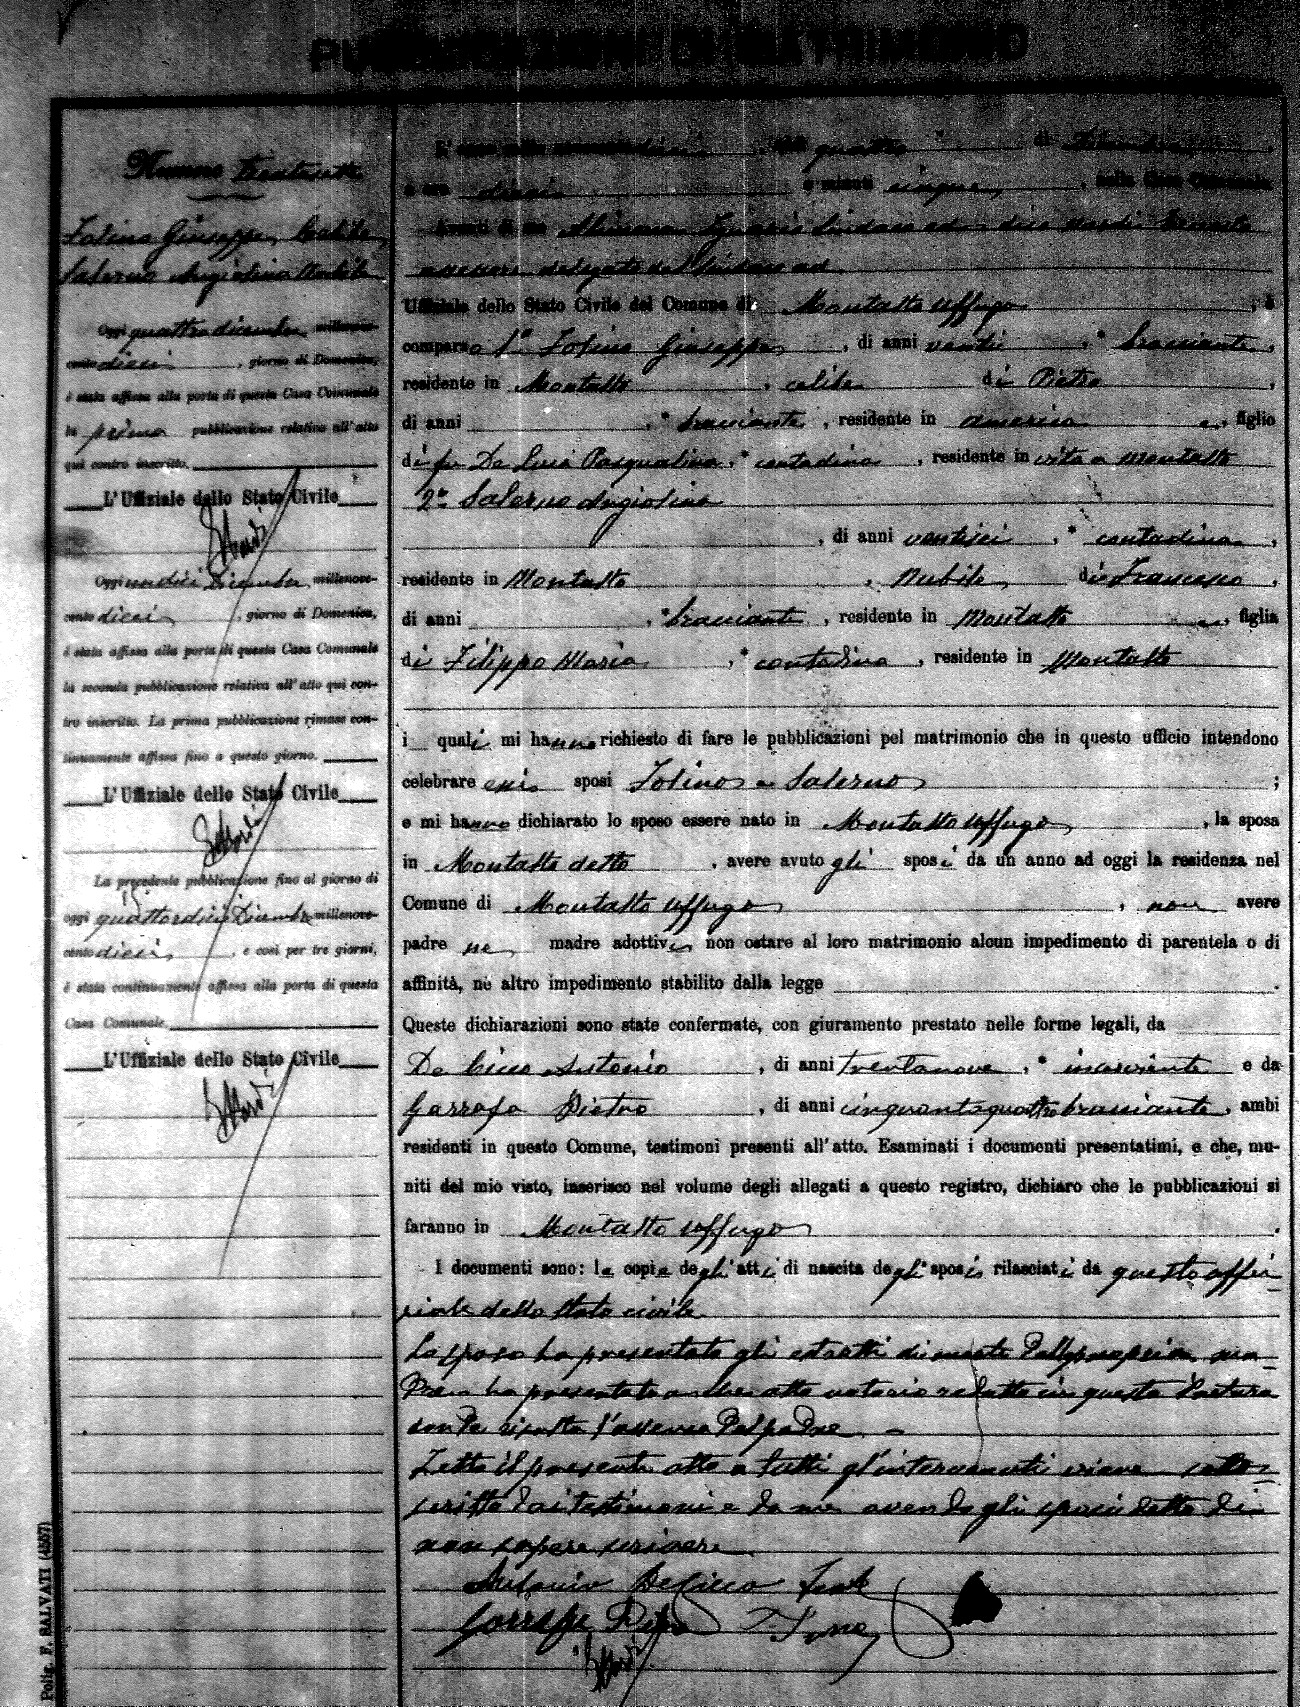 PUBBLICAZIONE DI MATRIMONIO
Numero trentasette
Giuseppe, Celibe,
Salerno Angiolina Nubile
Oggi quattro dicembre millenove-
cento dieci, giorno di Domenica,
è stata affissa alla porta di questa Casa Comunale
la prima pubblicazione relativa all'atto
qui contro inscritto.
L'Uffiziale dello Stato Civile
Oggi undici Dicembre millenove-
cento dieci, giorno di Domenica,
è stata affissa alla porta di questa Casa Comunale
la seconda pubblicazione relativa all'atto qui con-
tro inscritto. La prima pubblicazione rimase con-
tinuamente affissa fino a questo giorno.
L'Uffiziale dello Stato Civile
La precedente pubblicazione fino al giorno di
oggi quattordici Dicembre millenove-
cento dieci, e così per tre giorni,
è stata continuamente affissa alla porta di questa
Casa Comunale.
L'Uffiziale dello Stato Civile
Polig. F. SALVATI
quattro di
e ore dieci e minuti cinque, nella Casa Comunale
Avanti di me
delegato del Sindaco ad
Uffiziale dello Stato Civile del Comune di Montalto Uffugo, è
comparso 1° Giuseppe, di anni venti, bracciante,
residente in Montalto, celibe di Pietro,
di anni , bracciante, residente in america, figlio
di fu De Luca Pasqualina, contadina, residente in vita a Montalto
2° Salerno Angiolina
, di anni ventisei, contadina,
residente in Montalto, Nubile di Francesco,
di anni , bracciante, residente in Montalto, figlia
di Filippo Maria, contadina, residente in Montalto
i quali mi hanno richiesto di fare le pubblicazioni pel matrimonio che in questo ufficio intendono
celebrare essi sposi e Salerno ;
e mi hanno dichiarato lo sposo essere nato in Montalto Uffugo, la sposa
in Montalto detto, avere avuto gli sposi da un anno ad oggi la residenza nel
Comune di Montalto Uffugo, non avere
padre ne madre adottivi, non ostare al loro matrimonio alcun impedimento di parentela o di
affinità, nè altro impedimento stabilito dalla legge .
Queste dichiarazioni sono state confermate, con giuramento prestato nelle forme legali, da
De Cicco Antonio, di anni trentanove, inserviente e da
Garrafa Pietro, di anni cinquantaquattro bracciante, ambi
residenti in questo Comune, testimoni presenti all'atto. Esaminati i documenti presentatimi, e che, mu-
niti del mio visto, inserisco nel volume degli allegati a questo registro, dichiaro che le pubblicazioni si
faranno in Montalto Uffugo .
I documenti sono: le copie degli atti di nascita degli sposi rilasciati da questo uffi-
ziale dello stato civile
Lo sposo ha presentato gli estratti di morte
ha presentato anche atto notorio redatto in questa Pretura
l'assenza del padre.
Letto il presente atto a tutti gl'intervenuti viene sotto-
scritto dai testimoni e da me avendo gli sposi detto di
non sapere scrivere
Antonio De Cicco